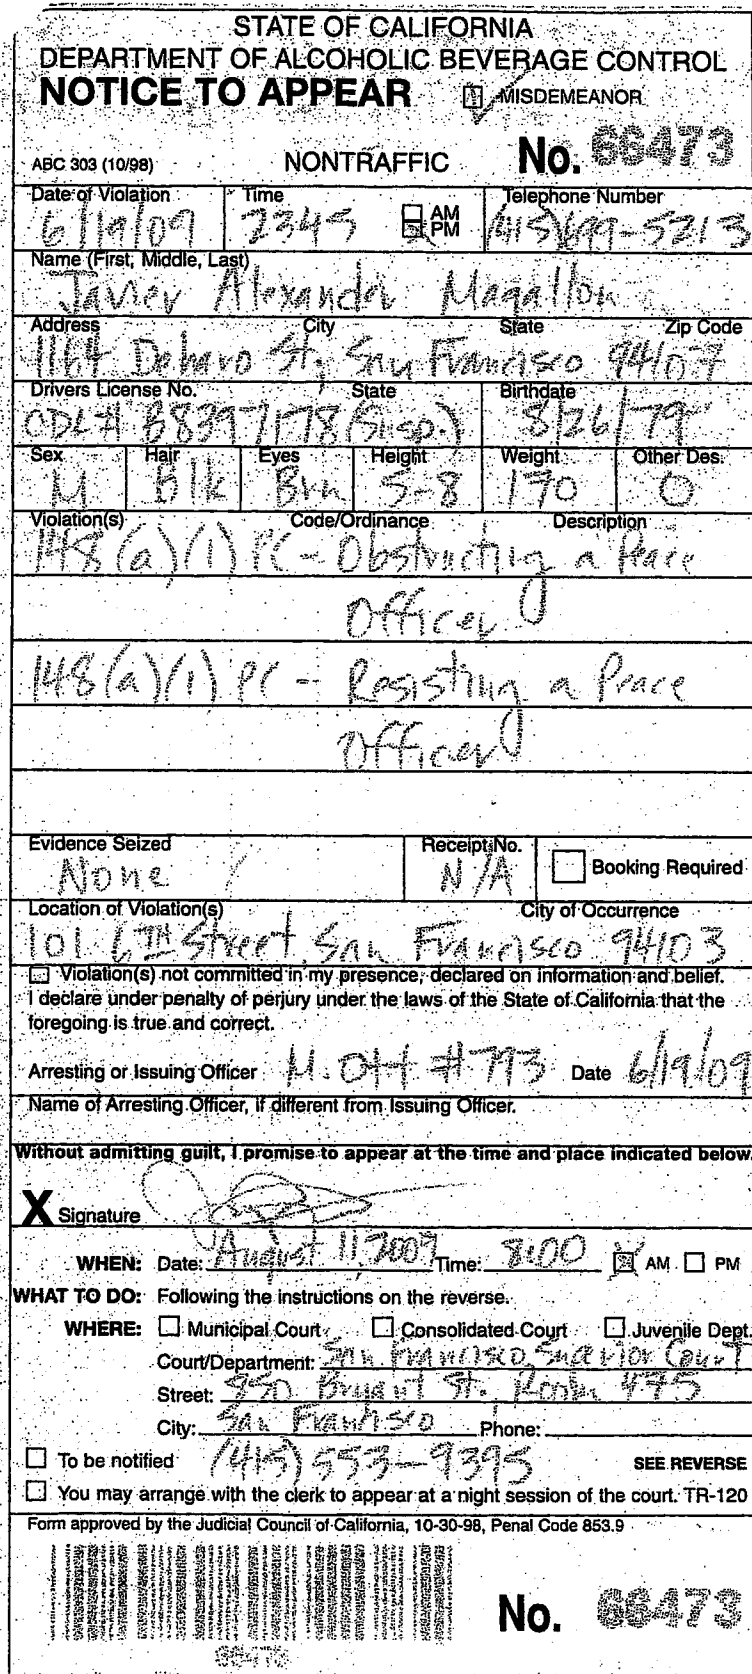 STATE OF CALIFORNIA
DEPARTMENT OF ALCOHOLIC BEVERAGE CONTROL
NOTICE TO APPEAR MISDEMEANOR
ABC 303 (10/98) NONTRAFFIC No. 66473
Date of Violation Time Telephone Number
6/19/09 2345 AM PM (415)699-5213
Name (First, Middle, Last)
Javier Alexander Magallon
Address City State Zip Code
1164 Deharo St, San Francisco 94107
Drivers License No. State Birthdate
CDL# B8397178 (Susp.) 8/26/79
Sex Hair Eyes Height Weight Other Des.
M Blk Brn 5-8 170 0
Violation(s) Code/Ordinance Description
148(a)(1) PC - Obstructing a Peace
Officer
148(a)(1) PC - Resisting a Peace
Officer
Evidence Seized Receipt No.
None N/A Booking Required
Location of Violation(s) City of Occurrence
101 6TH Street, San Francisco 94103
Violation(s) not committed in my presence, declared on information and belief.
I declare under penalty of perjury under the laws of the State of California that the
foregoing is true and correct.
Arresting or Issuing Officer M. Ott #793 Date 6/19/09
Name of Arresting Officer, if different from Issuing Officer.
Without admitting guilt, I promise to appear at the time and place indicated below.
X Signature
WHEN: Date: August 11, 2009 Time: 8:00 AM PM
WHAT TO DO: Following the instructions on the reverse.
WHERE: Municipal Court Consolidated Court Juvenile Dept.
Court/Department: San Francisco Superior Court
Street: 850 Bryant St. Room 475
City: San Francisco Phone:
To be notified (415) 553-9395 SEE REVERSE
You may arrange with the clerk to appear at a night session of the court. TR-120
Form approved by the Judicial Council of California, 10-30-98, Penal Code 853.9
No. 66473